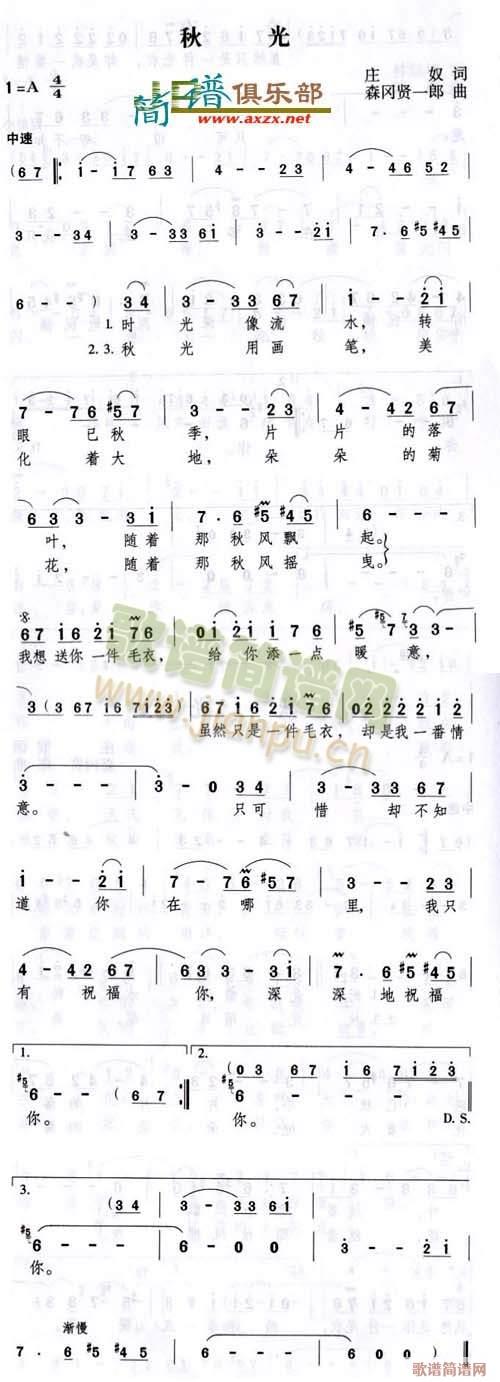 秋 光
1=A 4/4
简谱俱乐部
www.axzx.net
庄 奴 词
森冈贤一郎 曲
中速
(6 7 ‖: i - i 7 6 3 | 4 - - 2 3 | 4 - 4 6 5 2 |
3 - - 3 | 3 - 3 3 6 i | 3 - - 2 i | 7 . 6 #5 #4 5 |
6 - - ) 3 4 | 3 - 3 3 6 7 | i - - 2 i |
1.时 光 像 流 水, 转
2.3.秋 光 用 画 笔, 美
7 - 7 6 #5 7 | 3 - - 2 3 | 4 - 4 2 6 7 |
眼 已 秋 季, 片 片 的 落
化 着 大 地, 朵 朵 的 菊
6 3 3 - 3 i | 7 . 6 #5 #4 5 | 6 - - - |
叶, 随着 那 秋 风 飘 起。
花, 随着 那 秋 风 摇 曳。
6 7 i 6 2 i 7 6 | 0 i 2 i i 7 6 | #5 7 3 3 - |
我想 送你 一件 毛衣, 给 你 添 一 点 暖 意,
3 (3 6 7 i 6 7 i 2 3) | 6 7 i 6 2 i 7 6 | 0 2 2 2 2 2 i 2 |
虽然 只是 一件 毛衣, 却是 我一番情
3 - - - | 3 - 0 3 4 | 3 - 3 3 6 7 |
意。 只可 惜 却 不知
i - - 2 i | 7 - 7 6 #5 7 | 3 - - 2 3 |
道 你 在 哪 里, 我只
4 - 4 2 6 7 | 6 3 3 - 3 i | 7 6 #5 #4 5 |
有 祝 福 你, 深 深 地 祝福
1.
2.
(0 3 6 7 i 6 7 i 2 3)
6 - - (6 7 :‖ 6 - - -
你。 你。 D.S.
3.
(3 4 | 3 - 3 3 6 i |
6 - - - | 6 - 0 0 | 3 - - 2 i |
你。
渐慢
7 . 6 #5 #4 5 | 6 - - - | 6 - 0 0) ‖
歌谱简谱网
www.jianpu.cn
歌谱简谱网